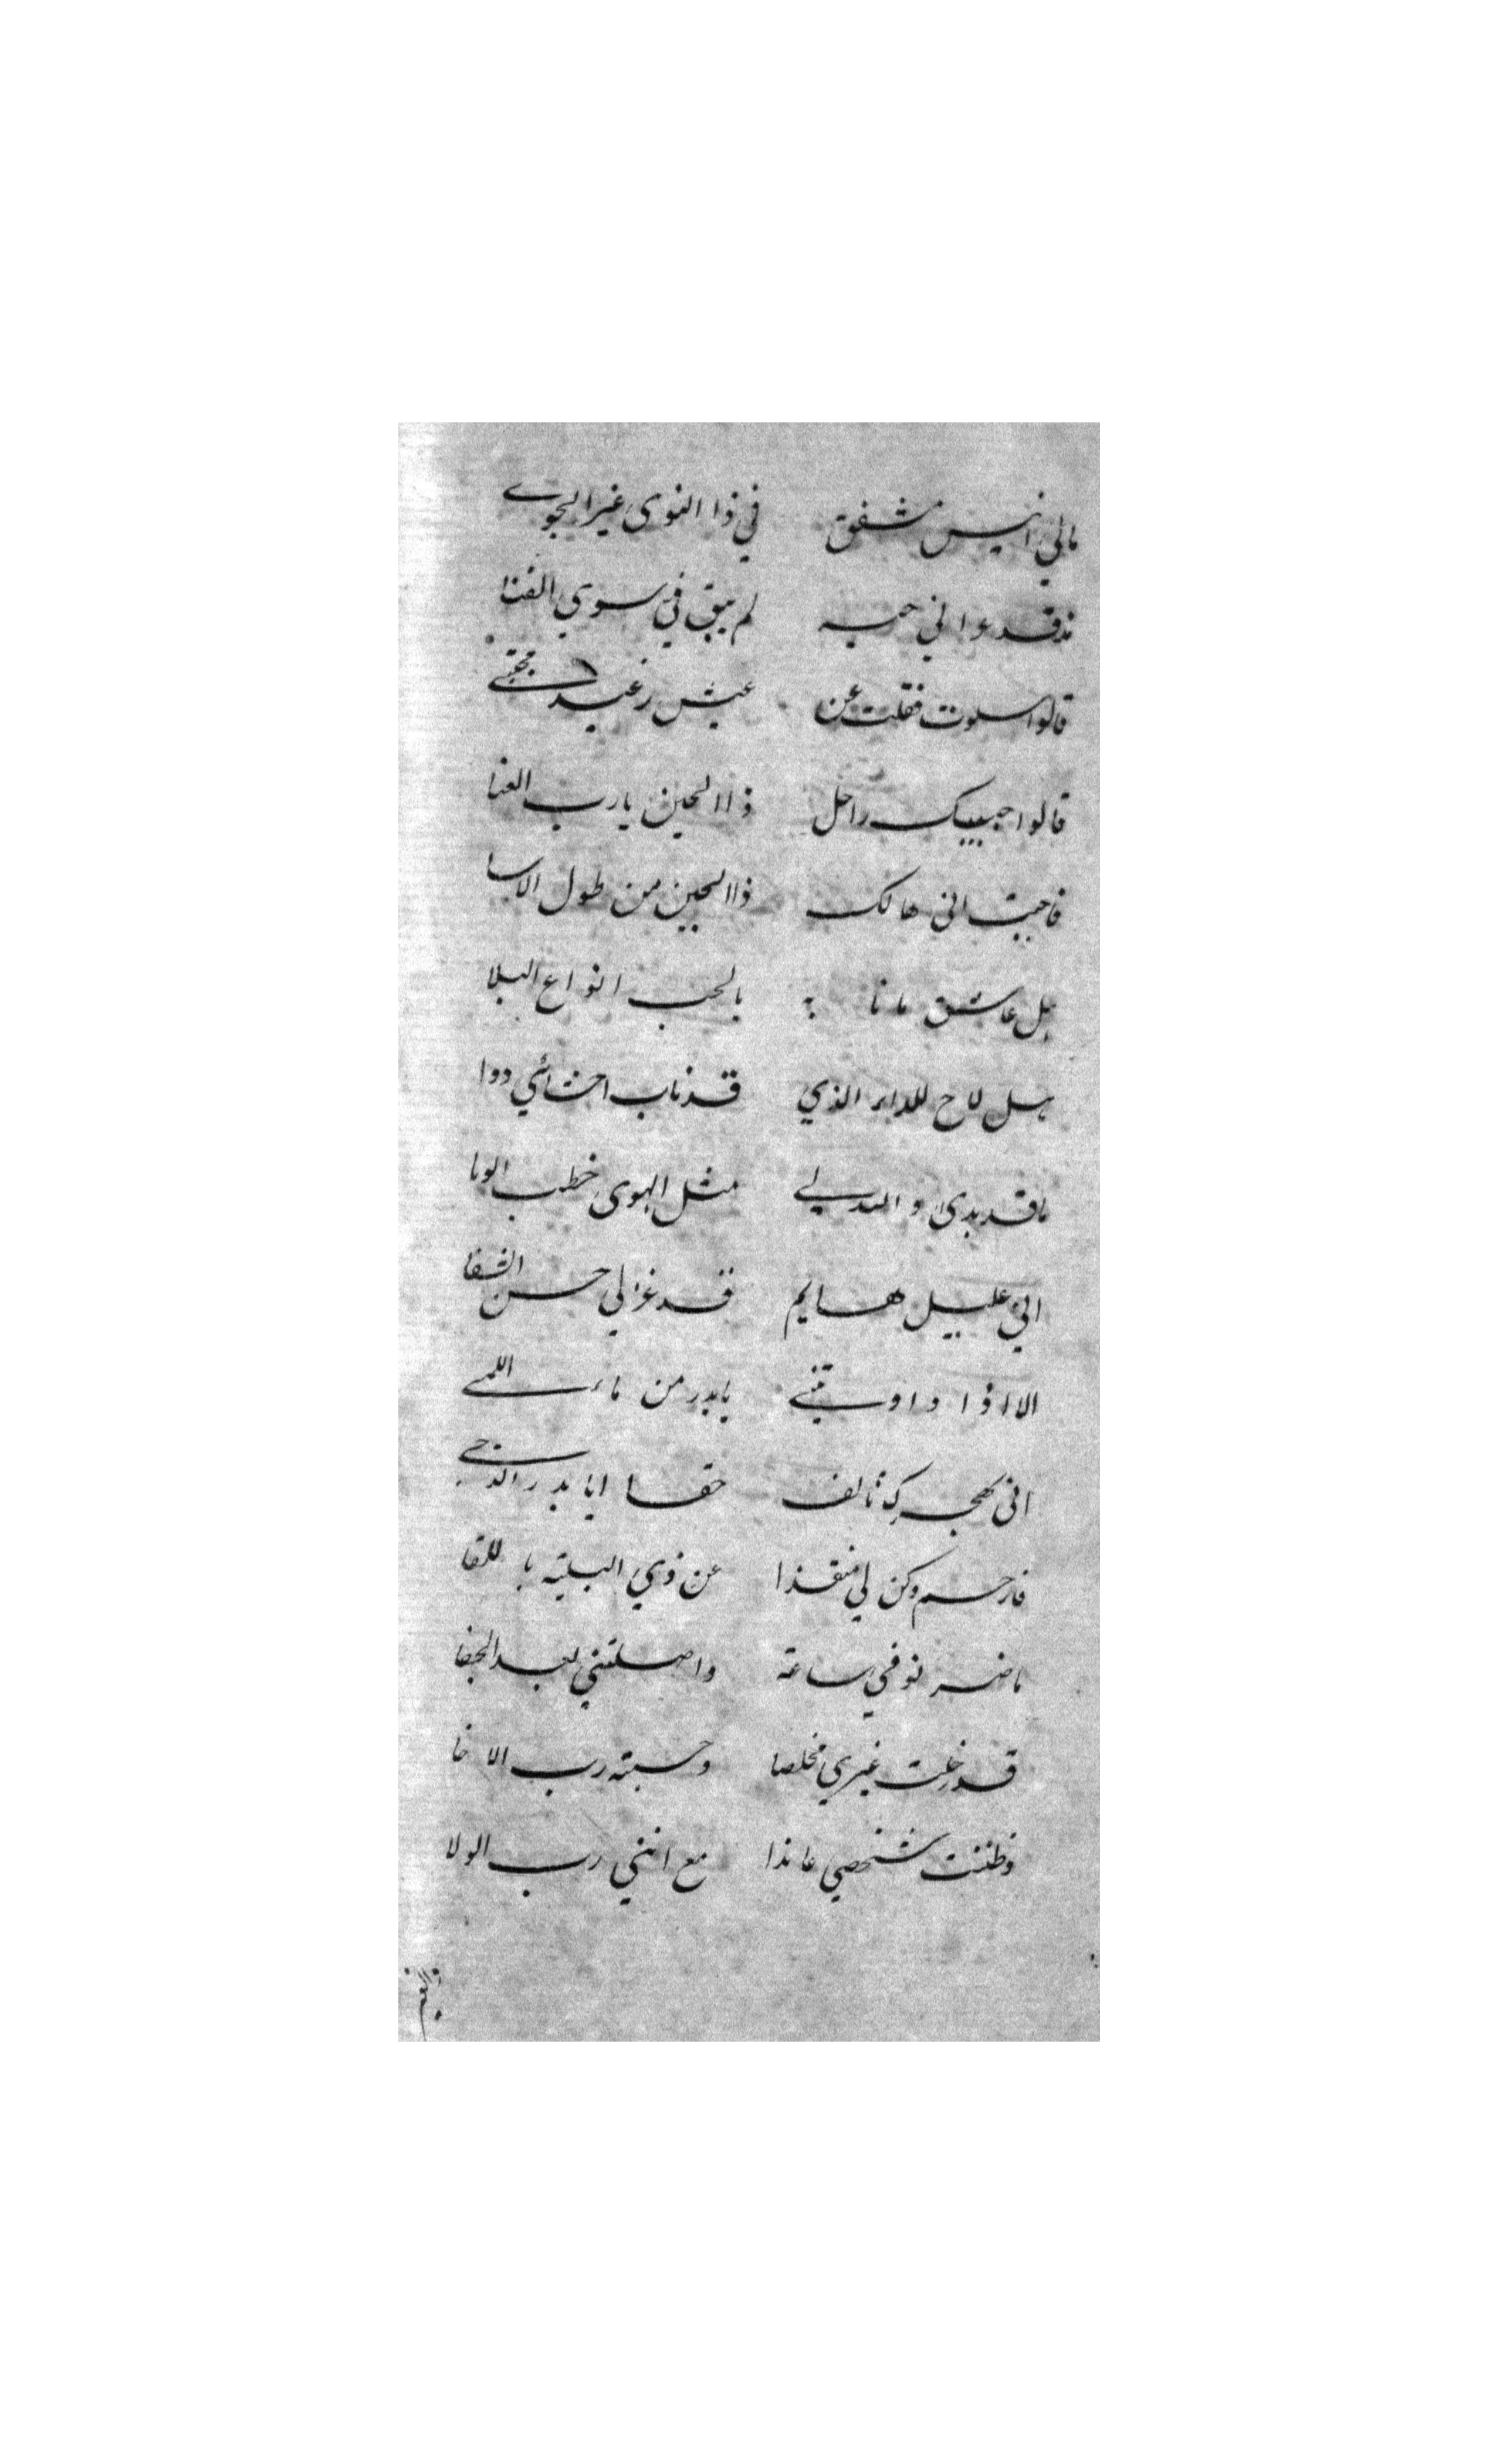 مالي انيس مشفق في ذا النوى غير الجوى
مذ قد دعواني حبه لم يبق في سوي الفنا
قالوا سلوت فقلت عن عيش رغيد مجتبى
قالوا حبيبك راحل ذا الحين يا رب العنا
فاجبت اني هالك ذا الحين من طول الاسا
بل عاشق مانا بالحب انواع البلا
هل لاح للداء الذي قد ناب احشائي دوا
ما قد بدى والله لي مثل الهوى خطب الوبا
اني عليل هايم قد عز لي حسن الشفا
الا اذا داويتني يا بدر من ماء اللمى
اني بهجرك تالف حقا ايا بدر الدجى
فارحم وكن لي منقذا عن ذي البلية باللقا
ما ضر لو في ساعة واصلتني بعد الجفا
قد خلت غيري مخلصا وحسبته رب الاخا
وظننت شخصي عاندا مع انني رب الولا